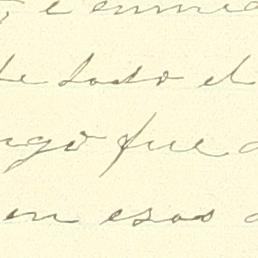 de todo el
ngo fue
en esos